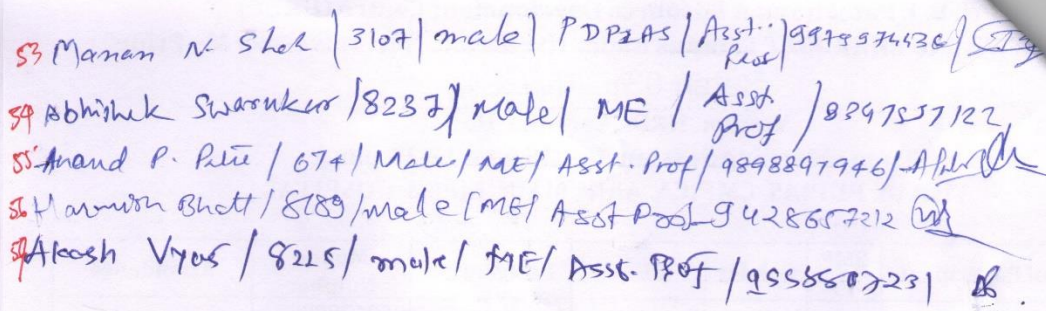 53 Manan N. Shah / 3107 / male / PDPIAS / Asst. Prof / 9979974536 /
54 Abhishek Swarnkar / 8237 / Male / ME / Asst. Prof / 8347557122
55 Anand P. / 674 / Male / ME / Asst. Prof / 9898897946 /
56 Bhatt / 8189 / male / ME / Asst Prof 9428657212
57 Akash Vyas / 8225 / male / ME / Asst. Prof /